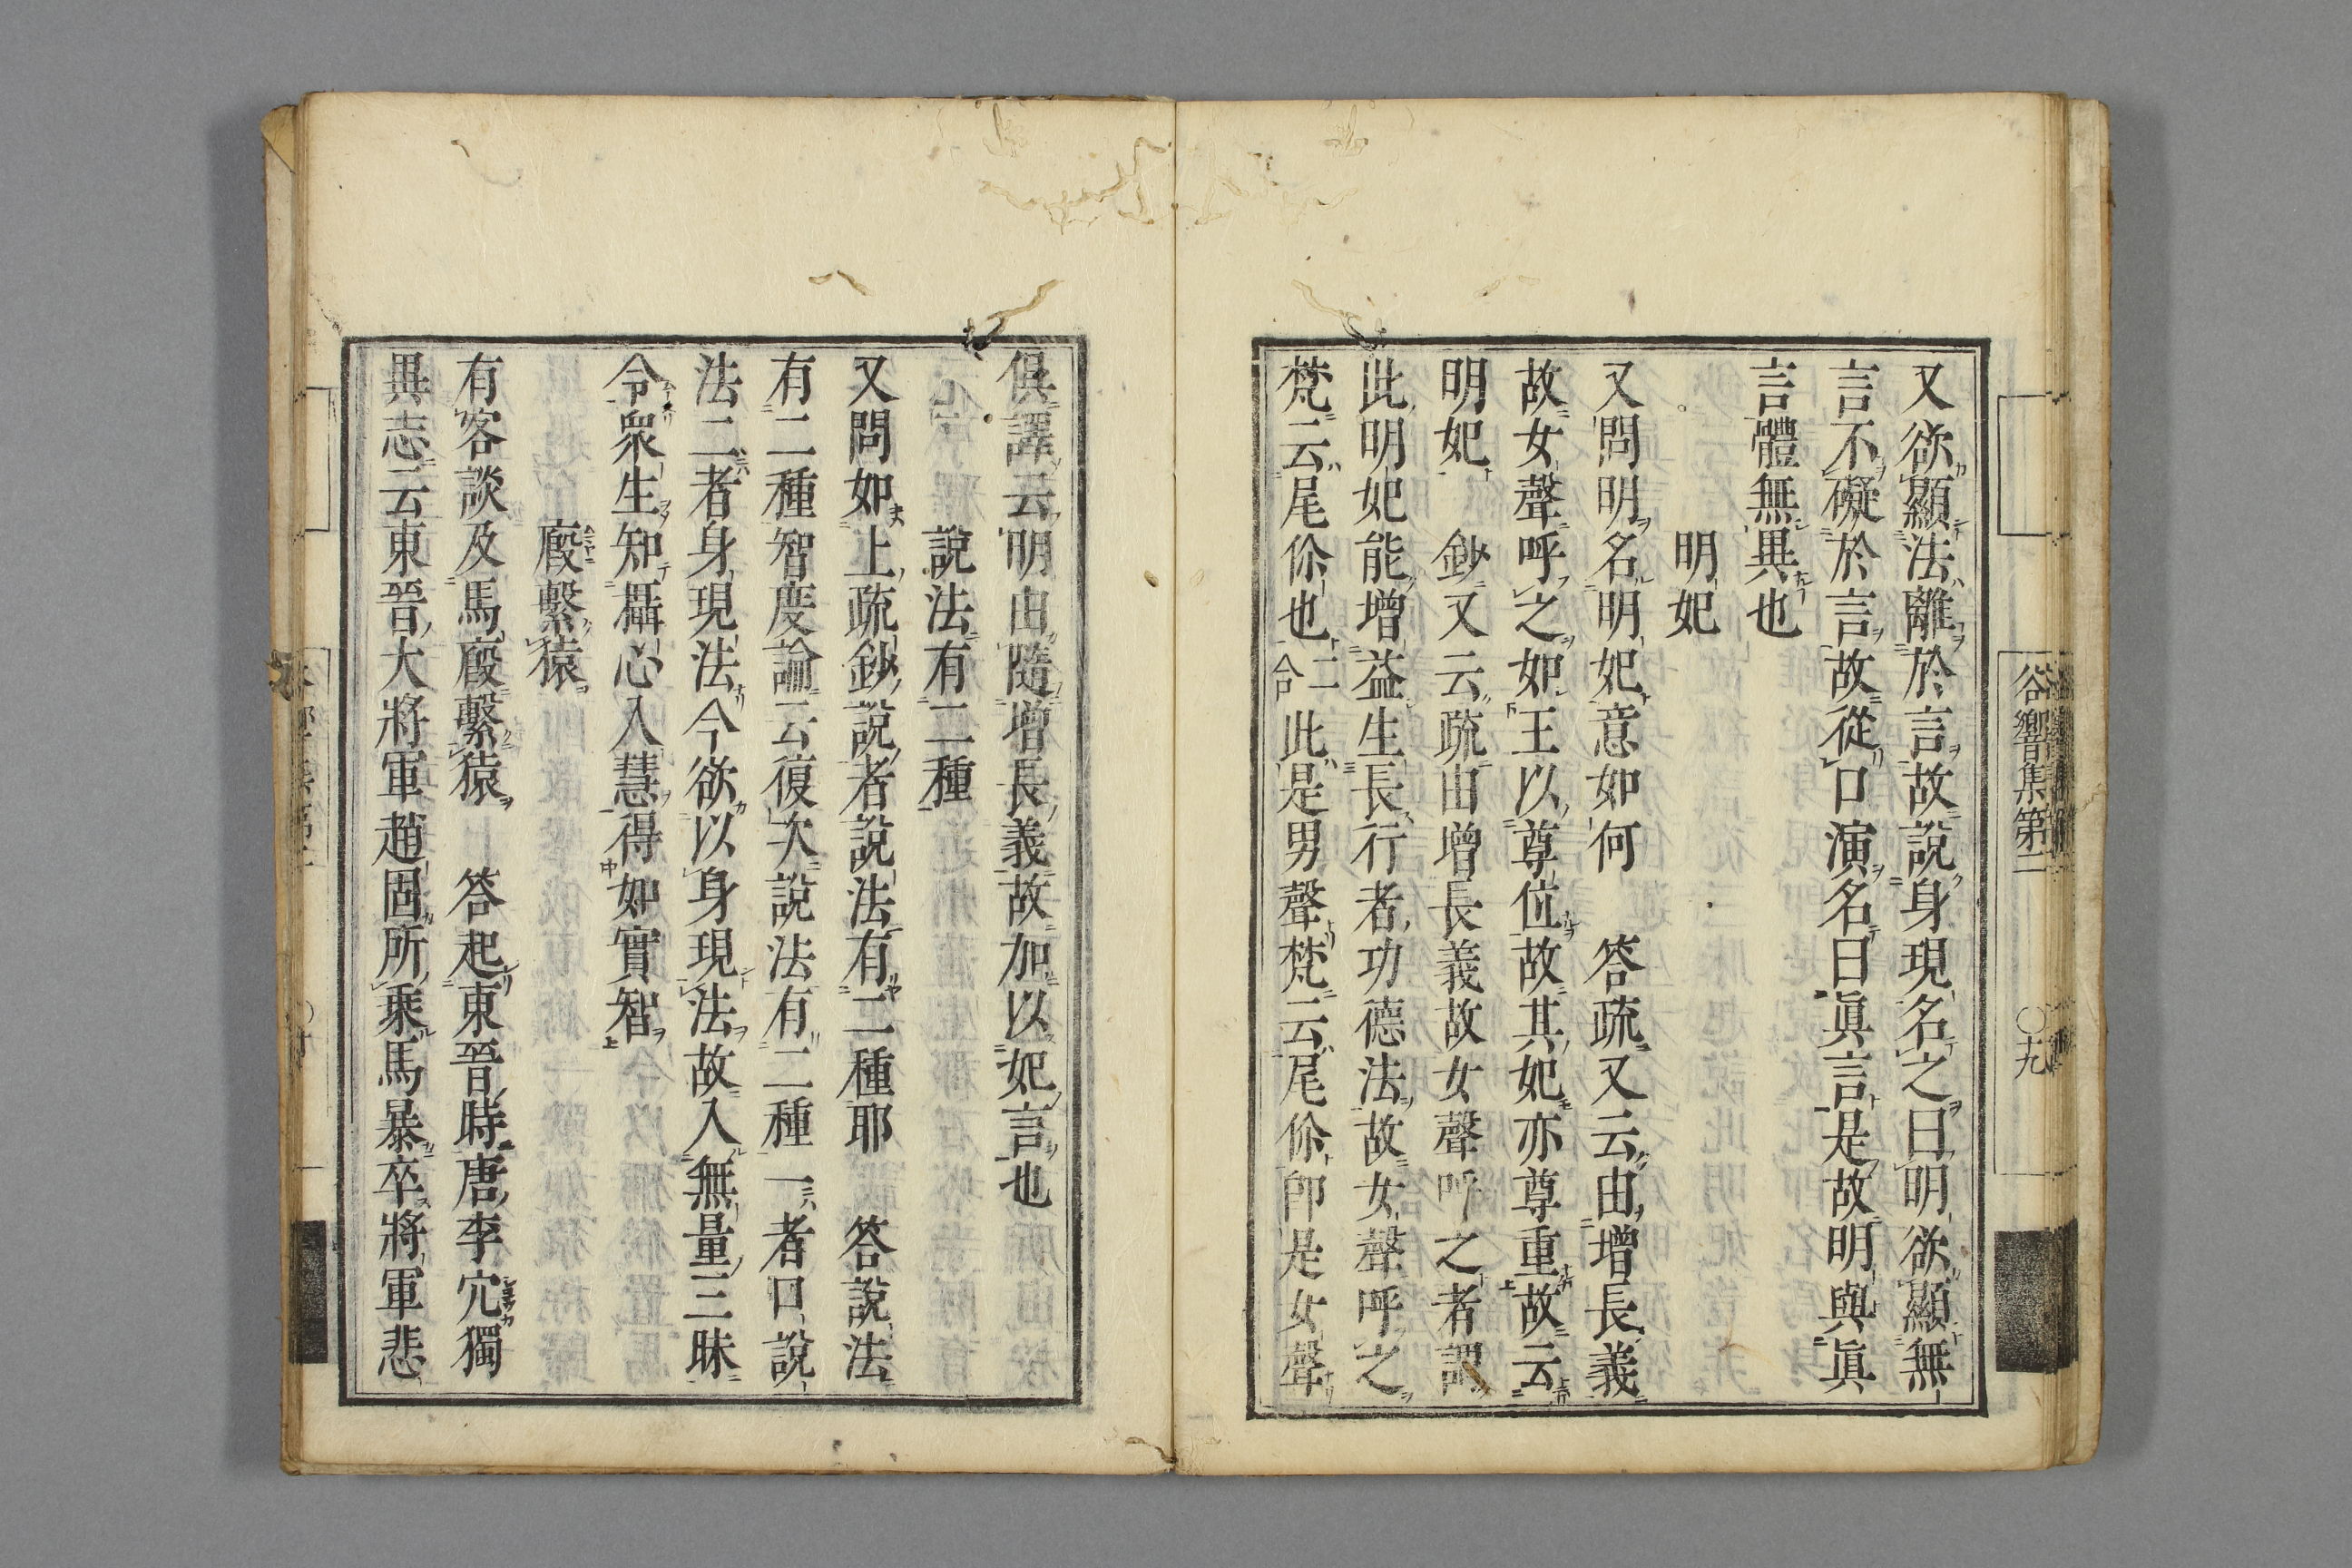 又欲顯法離於言故說身現名之曰明欲顯無
言不礙於言故從口演名曰眞言是故明與眞
言體無異也
明妃
又問明名明妃意如何　答疏又云由增長義
故女聲呼之如王以尊位故其妃亦尊重故云
明妃　鈔又云疏由增長義故女聲呼之者謂
此明妃能增益生長行者功德法故女聲呼之
梵云尾你也二合此是男聲梵云尾你卽是女聲
谷響集第二
〇九
俱譯云明由隨增長義故加以妃言也
說法有二種
又問如上疏鈔說者說法有二種耶　答說法
有二種智度論云復次說法有二種一者口說
法二者身現法今欲以身現法故入無量三昧
令衆生知攝心入慧得如實智
廄繫猿
有客談及馬廄繫猿　答起東晉時唐李冗獨
異志云東晉大將軍趙固所乘馬暴卒將軍悲